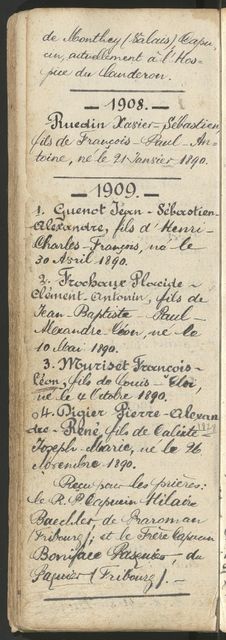 de Monthey (Valais) Capu-
cin, actuellement à l'Hos-
pice du Landeron.
— 1908. —
Ruedin Xavier-Sébastien,
fils de François-Paul-An-
toine, né le 21 Janvier 1890.
— 1909. —
1. Guenot Jean-Sébastien-
Alexandre, fils d'Henri-
Charles-François, né le
30 Avril 1890.
2. Frochaux Placide-
Clément-Antonin, fils de
Jean-Baptiste-Paul-
Alexandre-Léon, né le
10 Mai 1890.
3. Muriset François-
Léon, fils de Louis-Eloi,
né le 4 Octobre 1890.
4. Digier Pierre-Alexan
dre-René, fils de Calixte
Joseph-Marie, né le 26
Novembre 1890.
Reçu pour les prières:
le R. P. Capucin Hilaire
Baechler, de Praroman
(Fribourg); et le Frère Capucin
Boniface Pasquier, du
Pâquier (Fribourg). —